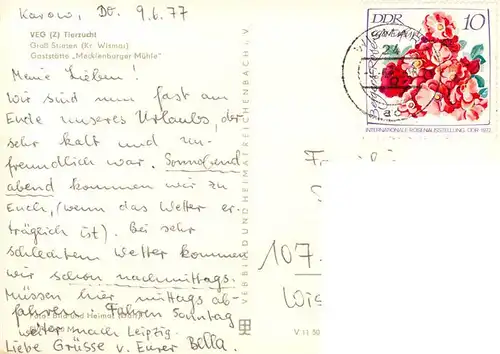 Karow, Do. 9.6.77
VEG (Z) Tierzucht
Groß Stieten (Kr. Wismar)
Gaststätte „Mecklenburger Mühle"
Meine Lieben!
Wir sind nun fast am
Ende unseres Urlaubs, der
sehr kalt und un-
freundlich war. Sonnabend
abend kommen wir zu
Euch, (wenn das Wetter er-
träglich ist). Bei sehr
schlechtem Wetter kommen
wir schon nachmittags.
Müssen hier mittags ab-
fahren. Fahren Sonntag
weiter nach Leipzig.
Liebe Grüsse v. Eurer Bella.
VEB BILD UND HEIMAT REICHENBACH I. V.
DDR 10
INTERNATIONALE ROSENAUSSTELLUNG DDR 1972
107.
Wis
V 11 50